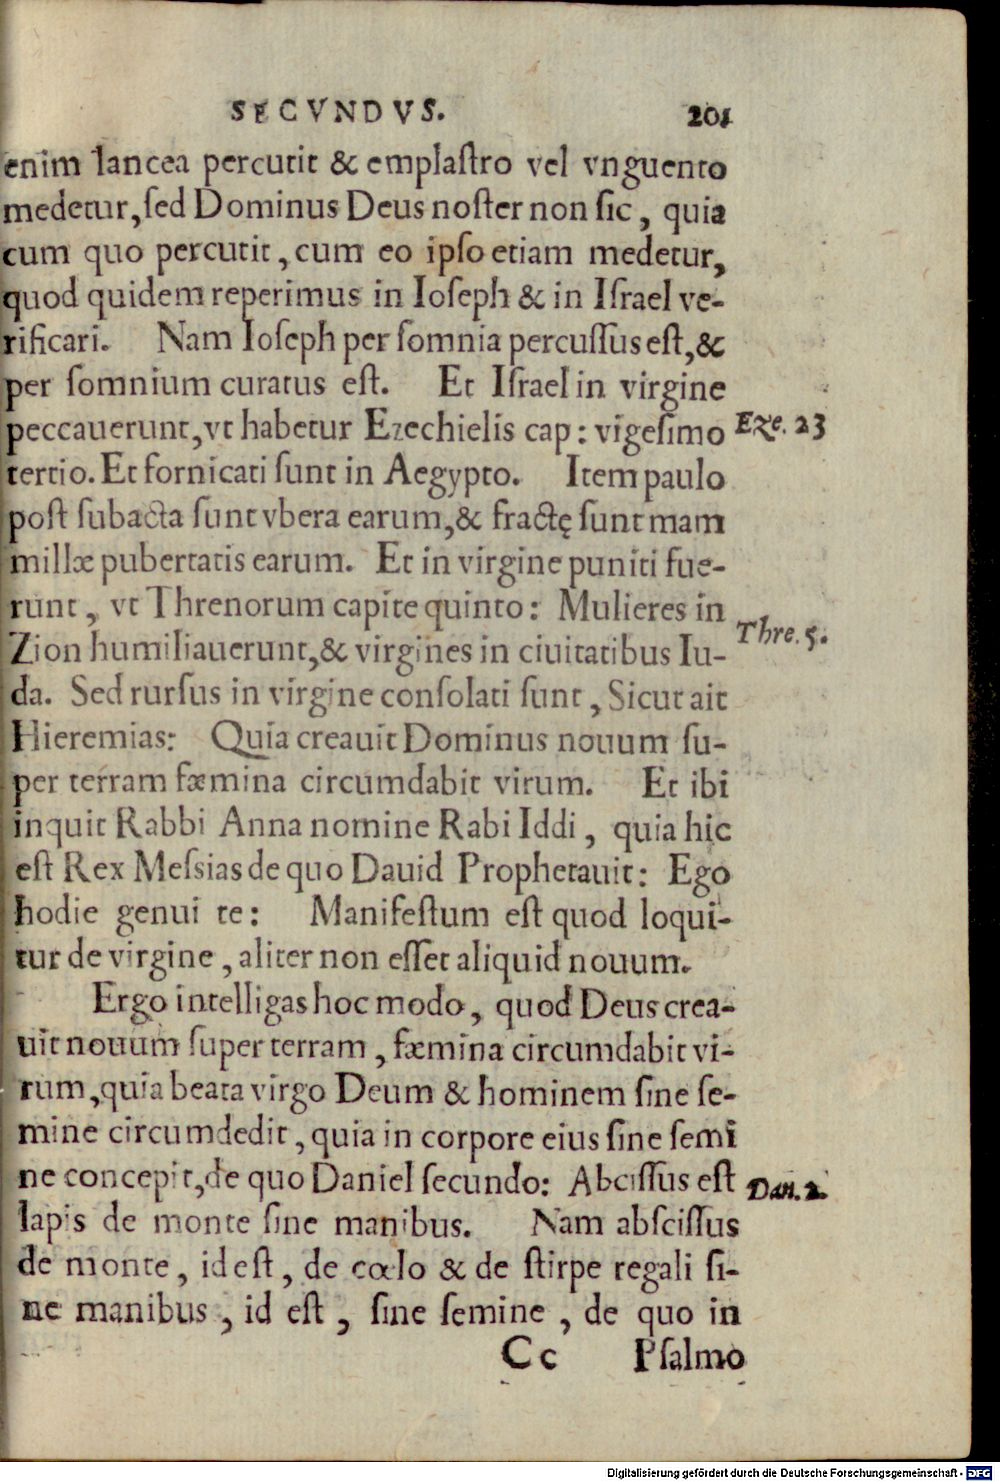 SECVNDVS. 201
enim lancea percutit & emplastro vel vnguento
medetur, sed Dominus Deus noster non sic, quia
cum quo percutit, cum eo ipso etiam medetur,
quod quidem reperimus in Ioseph & in Israel ve-
rificari. Nam Ioseph per somnia percussus est, &
per somnium curatus est. Et Israel in virgine
peccauerunt, vt habetur Ezechielis cap: vigesimo Eze. 23
tertio. Et fornicati sunt in Aegypto. Item paulo
post subacta sunt vbera earum, & fractę sunt mam
millæ pubertatis earum. Et in virgine puniti fue-
runt, vt Threnorum capite quinto: Mulieres in
Thre. 5.
Zion humiliauerunt, & virgines in ciuitatibus Iu-
da. Sed rursus in virgine consolati sunt, Sicut ait
Hieremias: Quia creauit Dominus nouum su-
per terram fæmina circumdabit virum. Et ibi
inquit Rabbi Anna nomine Rabi Iddi, quia hic
est Rex Messias de quo Dauid Prophetauit: Ego
hodie genui te: Manifestum est quod loqui-
tur de virgine, aliter non esset aliquid nouum.
Ergo intelligas hoc modo, quod Deus crea-
uit nouum super terram, fæmina circumdabit vi-
rum, quia beata virgo Deum & hominem sine se-
mine circumdedit, quia in corpore eius sine semi
ne concepit, de quo Daniel secundo: Abcissus est Dan. 2.
lapis de monte sine manibus. Nam abscissus
de monte, id est, de cœlo & de stirpe regali si-
ne manibus, id est, sine semine, de quo in
Cc Psalmo
Digitalisierung gefördert durch die Deutsche Forschungsgemeinschaft - DFG